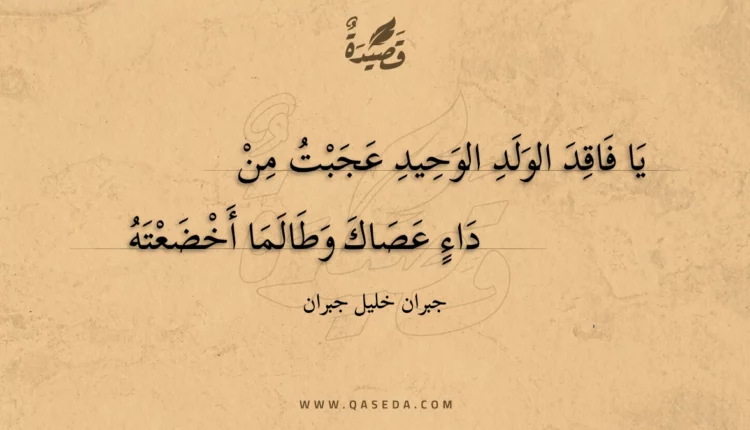 قَصِيدَةٌ
يَا فَاقِدَ الوَلَدِ الوَحِيدِ عَجَبْتُ مِنْ
دَاءٍ عَصَاكَ وَطَالَمَا أَخْضَعْتَهُ
جبران خليل جبران
WWW.QASEDA.COM